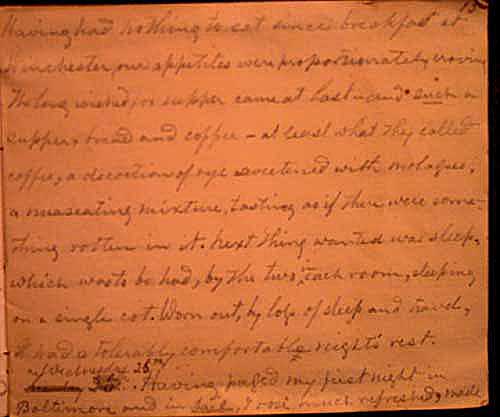 13
Having had nothing to eat since breakfast at
Winchester, our appetites were proportionately craving
The long wished for supper came at last - and such a
supper, bread and coffee - at least what they called
coffee, a decoction of rye sweetened with molasses,
a nauseating mixture, tasting as if there were some-
thing rotten in it. Next thing wanted was sleep,
which was to be had, by the two, in each room, sleeping
on a single cot. Worn out, by loss of sleep and travel,
I had a tolerably comfortable night's rest.
Wednesday 26th
Having passed my first night in
Baltimore and in jail, I rose, much refreshed, made